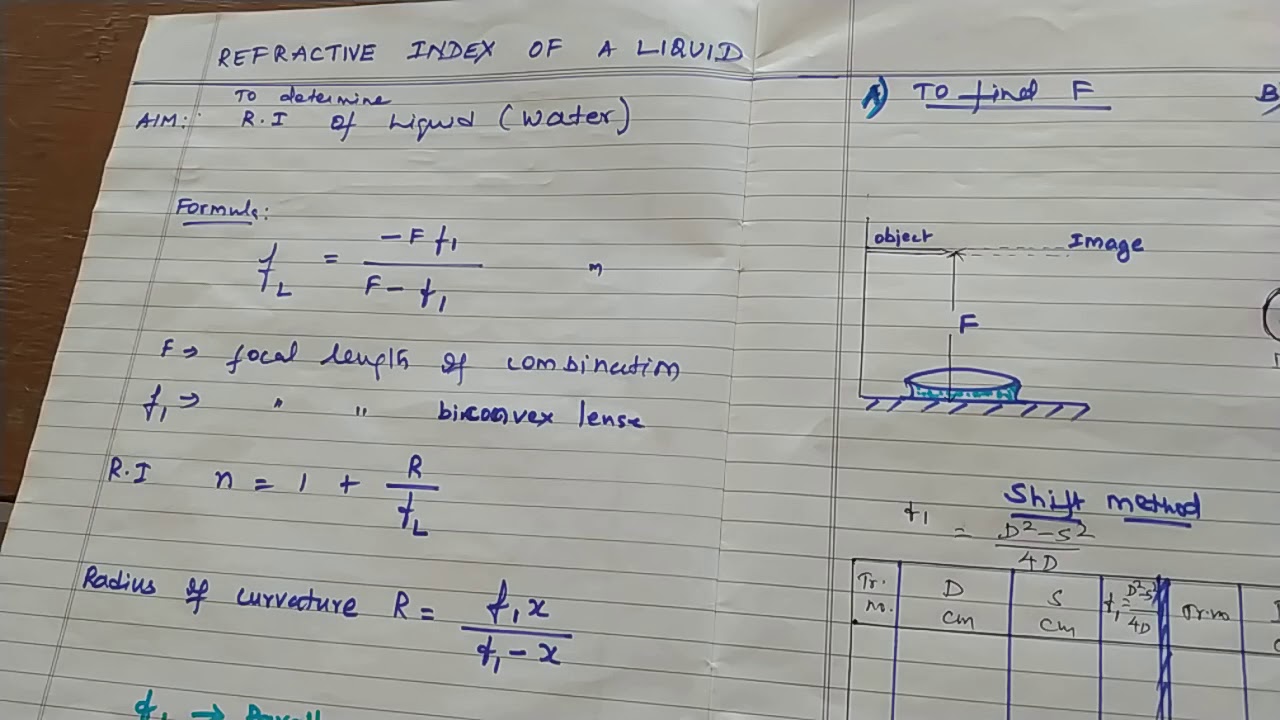 REFRACTIVE INDEX OF A LIQUID
To determine
AIM: R.I of Liquid (water)
Formula:
f_L = -F f₁ / F - f₁ m
F → focal length of combination
f₁ → " " biconvex lense
R.I n = 1 + R / f_L
Radius of curvature R = f₁x / f₁ - x
f₁ →
A) To find F
B
object
Image
F
Shift method
f₁ = D² - S² / 4D
Tr. no. D cm S cm f₁ = D²-S² / 4D Tr.no